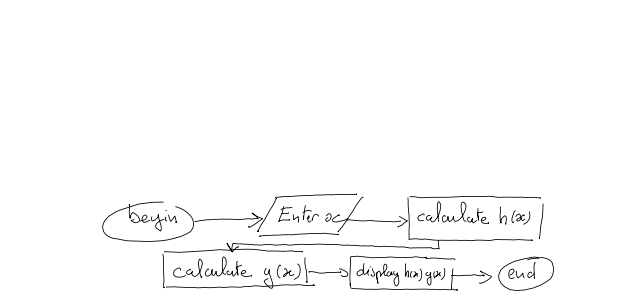 begin
Enter x
calculate h(x)
calculate y(x)
display h(x) y(x)
end